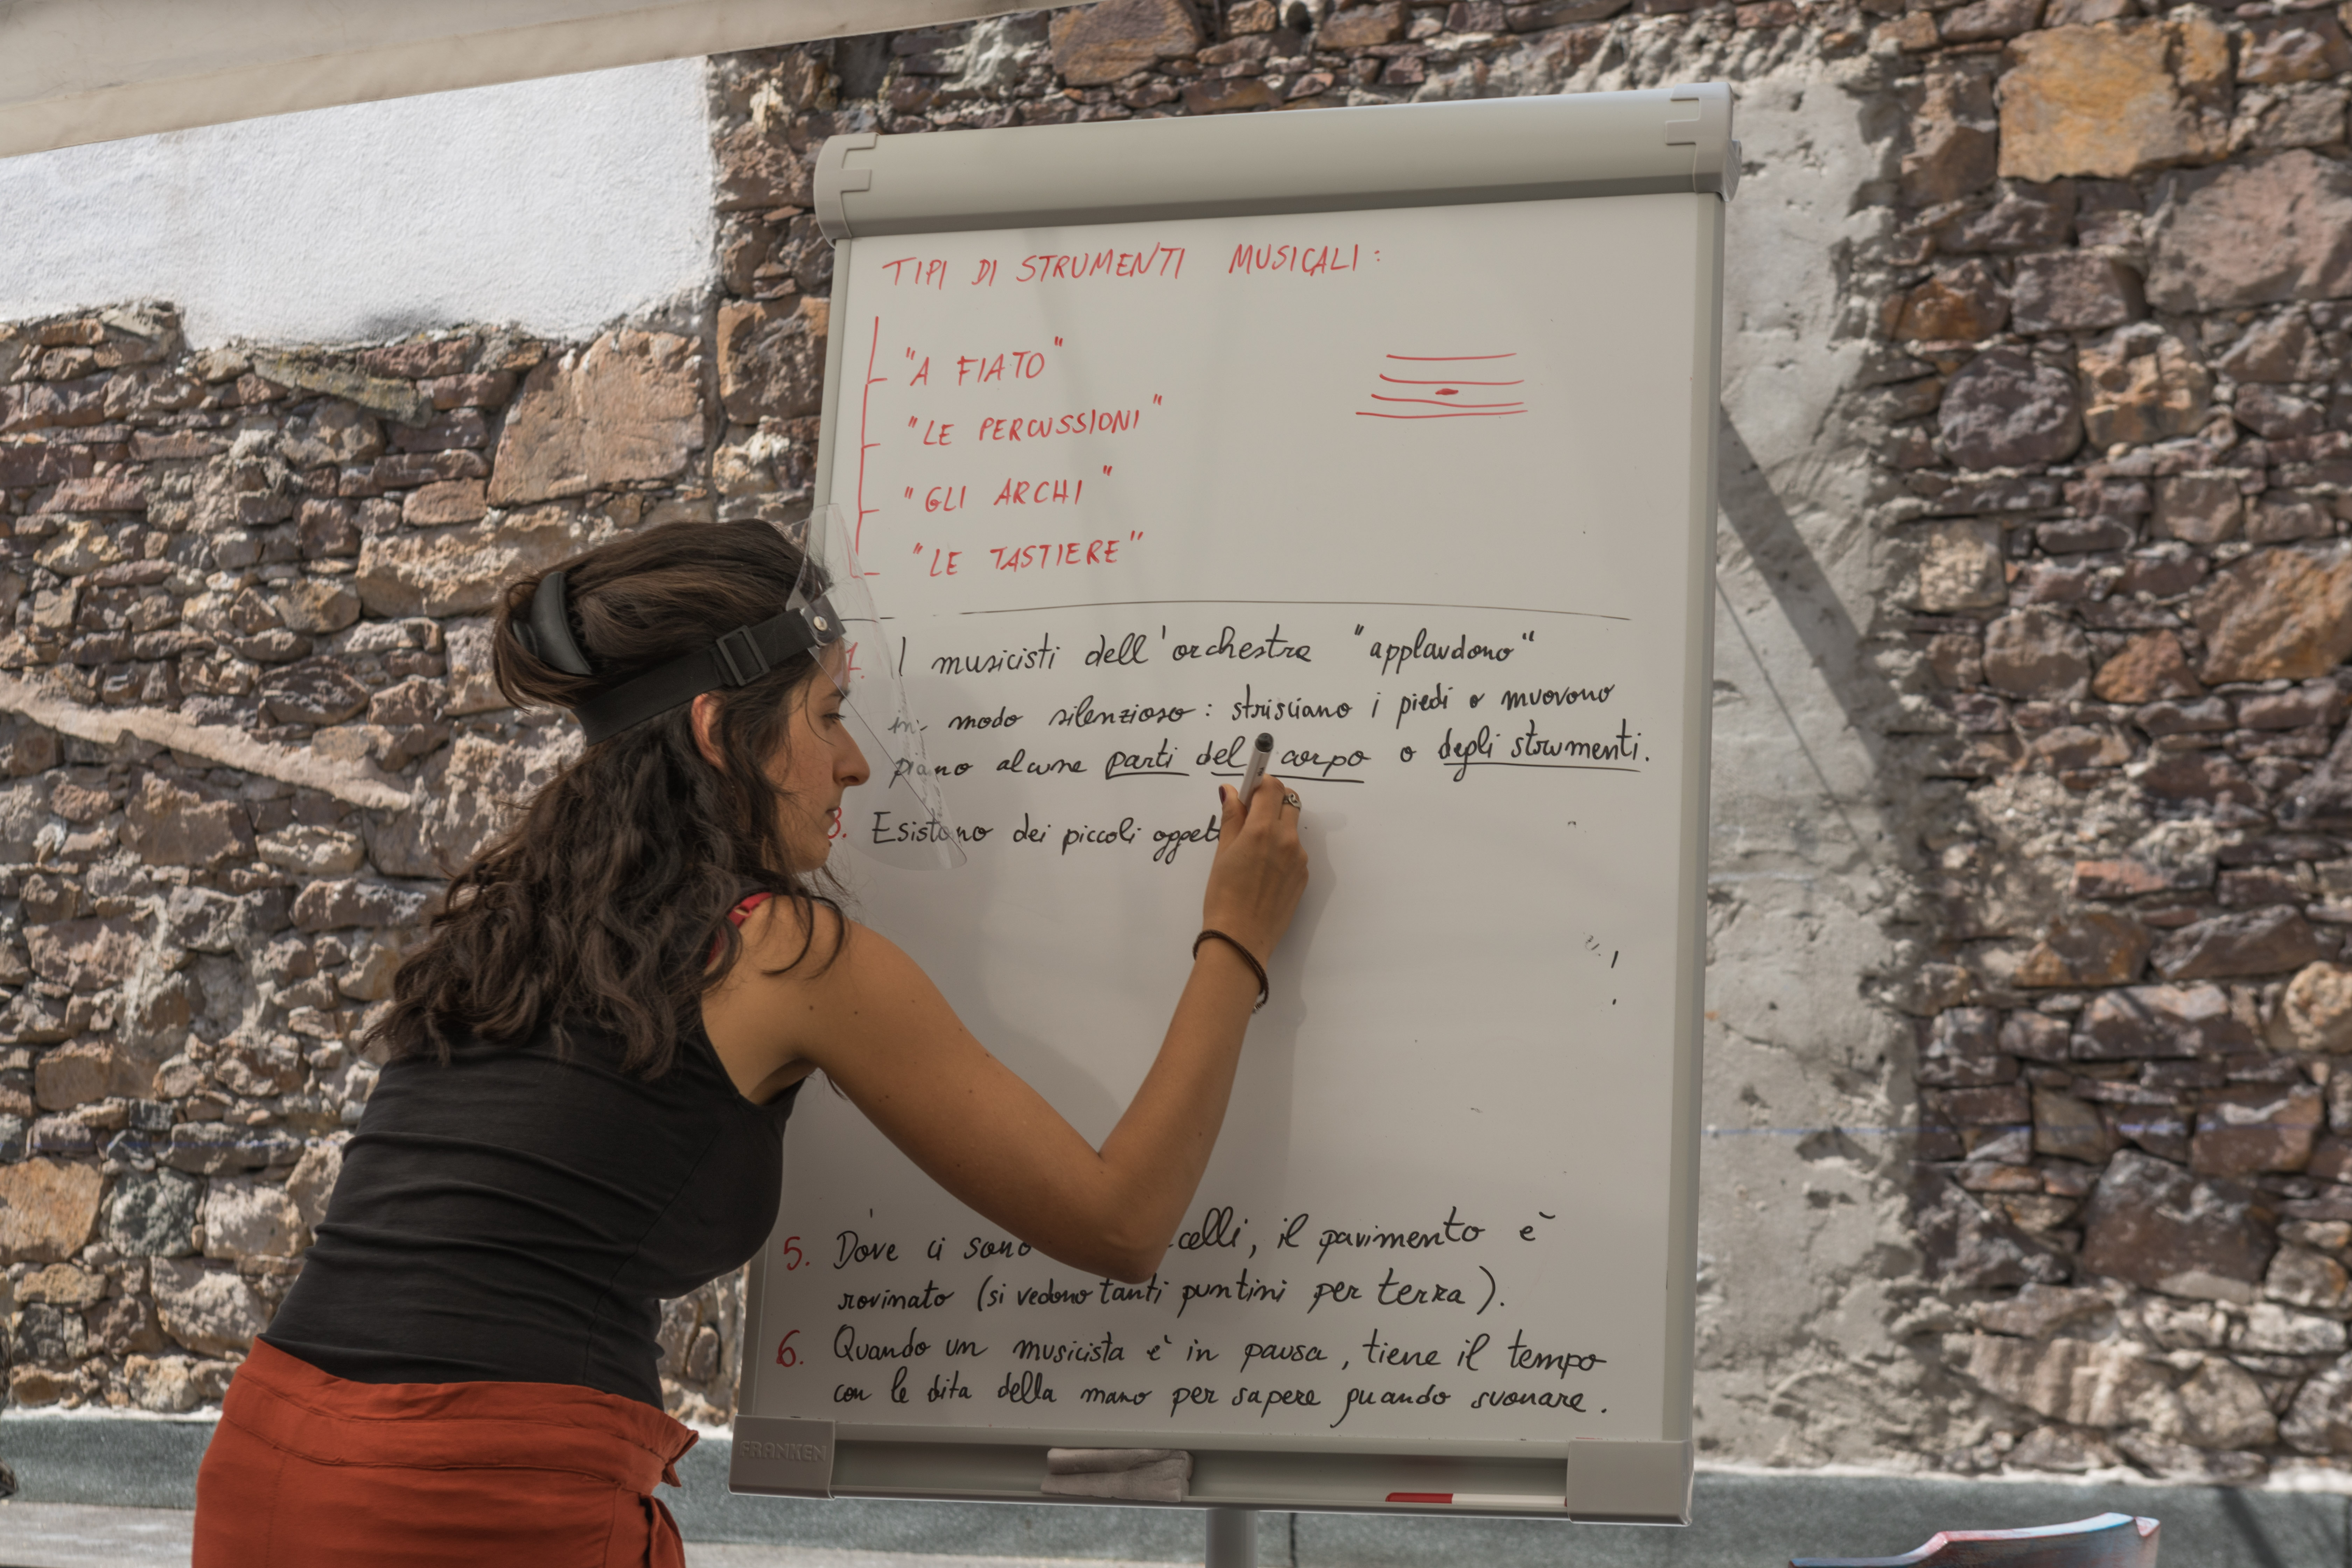 TIPI DI STRUMENTI MUSICALI:
"A FIATO"
"LE PERCUSSIONI"
"GLI ARCHI"
"LE TASTIERE"
1. I musicisti dell'orchestra "applaudono"
in modo silenzioso: strisciano i piedi o muovono
piano alcune parti del corpo o degli strumenti.
3. Esistono dei piccoli oggett
5. Dove ci sono celli, il pavimento è
rovinato (si vedono tanti puntini per terra).
6. Quando un musicista è in pausa, tiene il tempo
con le dita della mano per sapere quando suonare.
FRANKEN